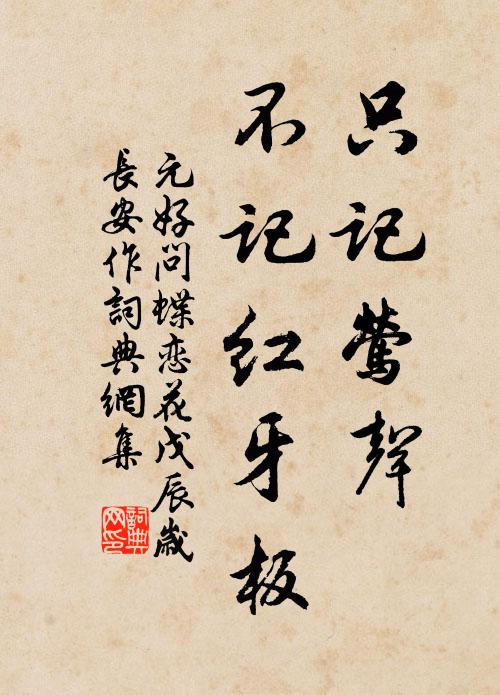 只记莺聲
不记红牙板
元好问蝶恋花戊辰歲
長安作詞典網集
詞典
网印